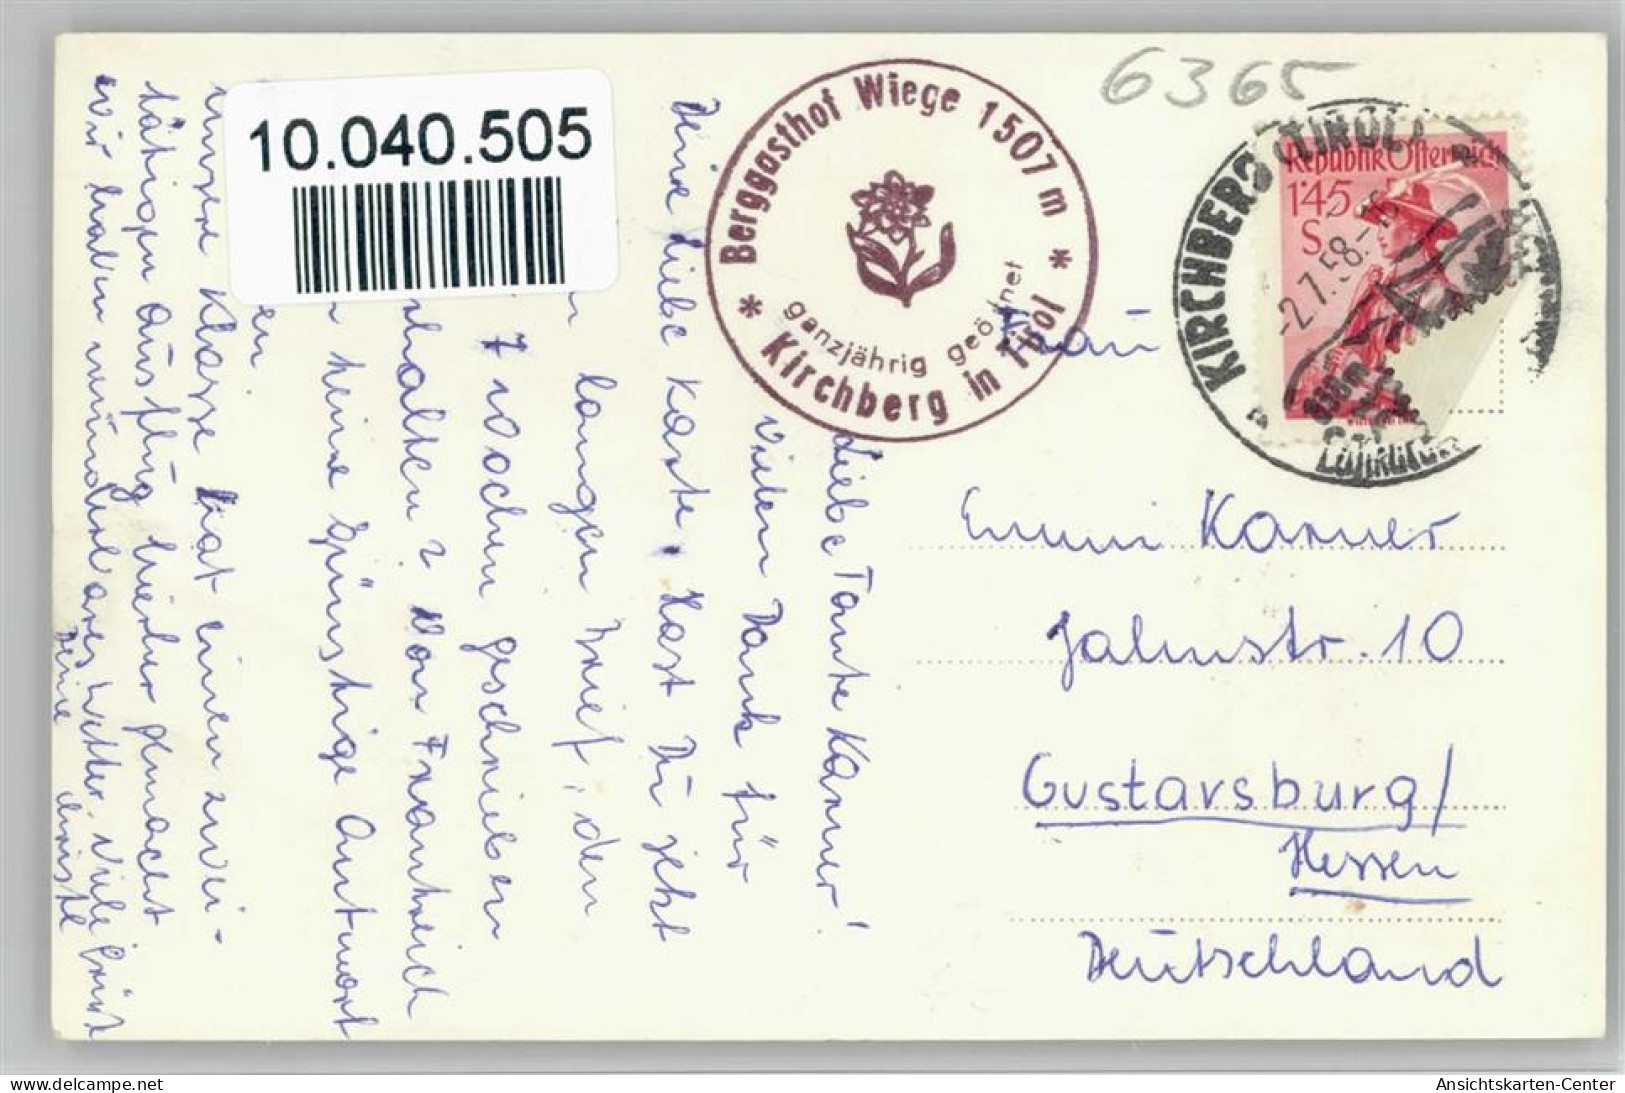 10.040.505
Berggasthof Wiege 1507 m
ganzjährig geöffnet
* Kirchberg in Tirol *
6365
KIRCHBERG (TIROL)
-2.7.58.-16
Republik Österreich
1'45
S
Frau
Emmi Karner
Jahnstr. 10
Gustavsburg/
Hessen
Deutschland
Liebe Tante Karner!
Vielen Dank für
Deine liebe Karte. Hast Du jetzt
langen Brief, den
7 Wochen geschrieben
halten? Von Frankreich
keine günstige Antwort
en.
unsere Klasse hat einen zwei-
tätigen Ausflug hierher gemacht
Wir haben wunderbares Wetter. Viele Grüße
Deine Christl
www.delcampe.net
Ansichtskarten-Center